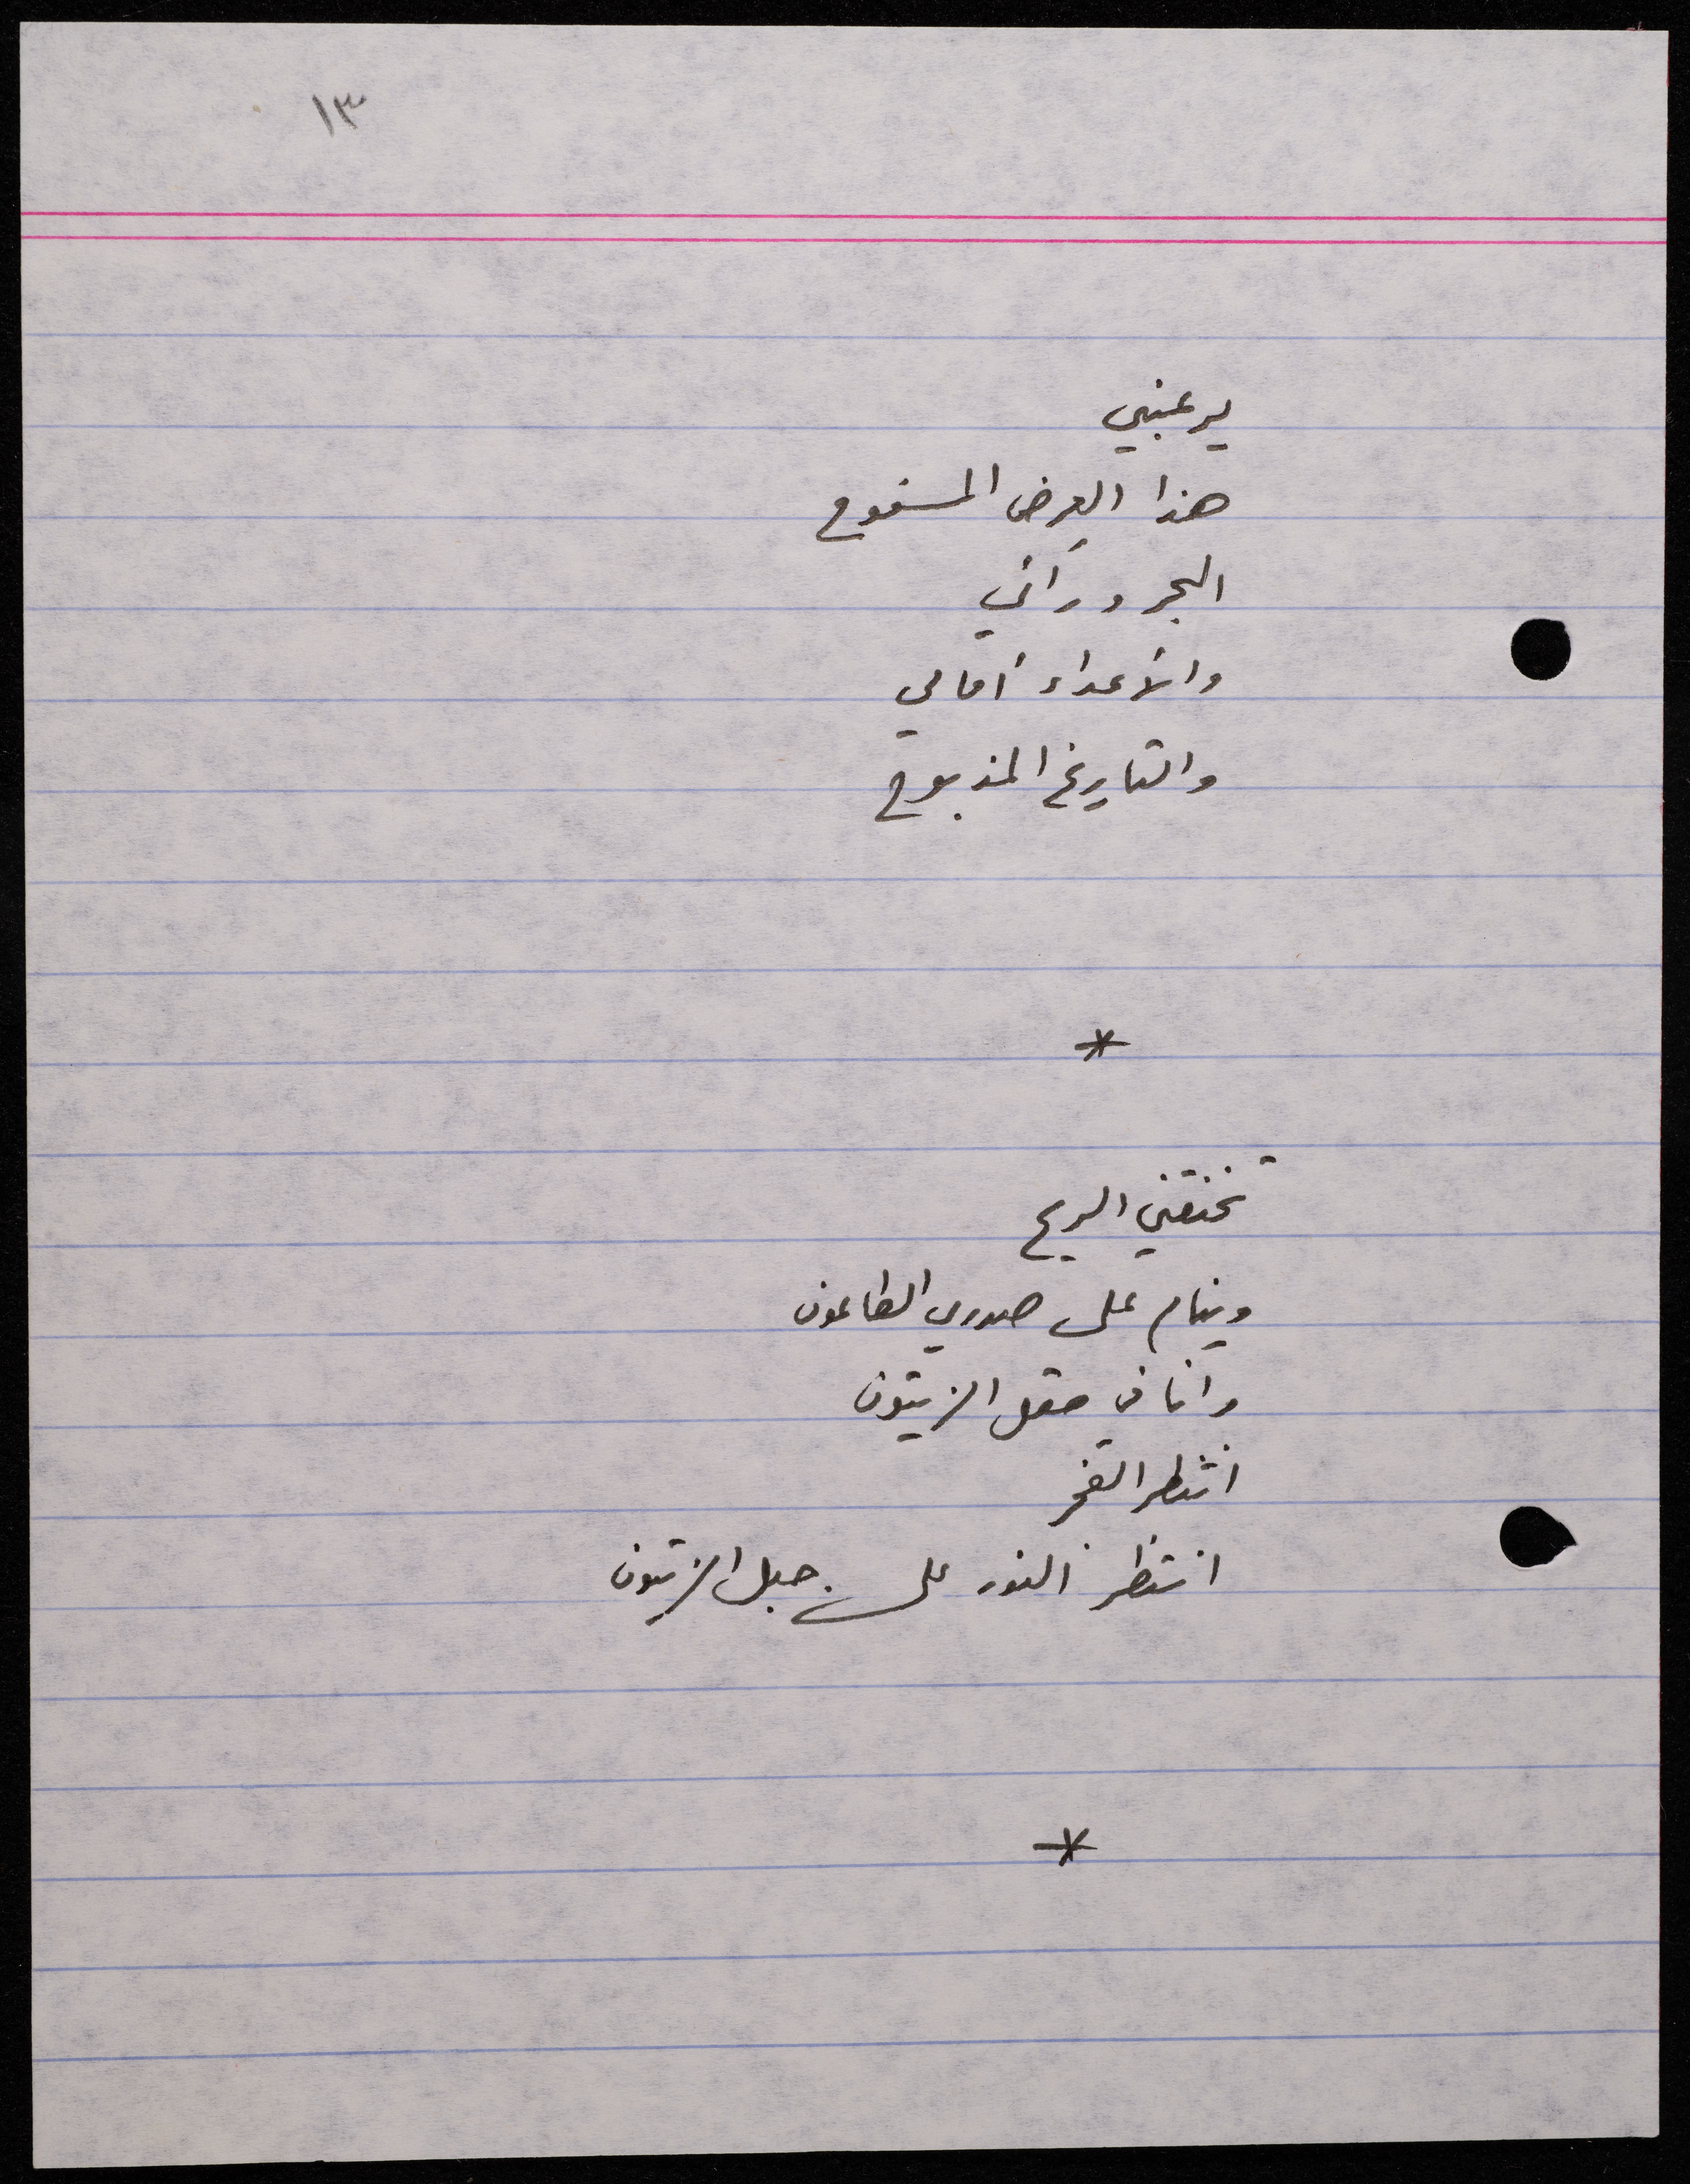 ١٣
يرعبني
هذا العِرض المسفوح
البحر ورائي
والأعداء أمامي
والتاريخ المذبوح
*
تخنقني الريح
وينام على صدري الطاعون
وانا في حقل الزيتون
انتظر الفجر
انتظر النور على جبل الزيتون
*